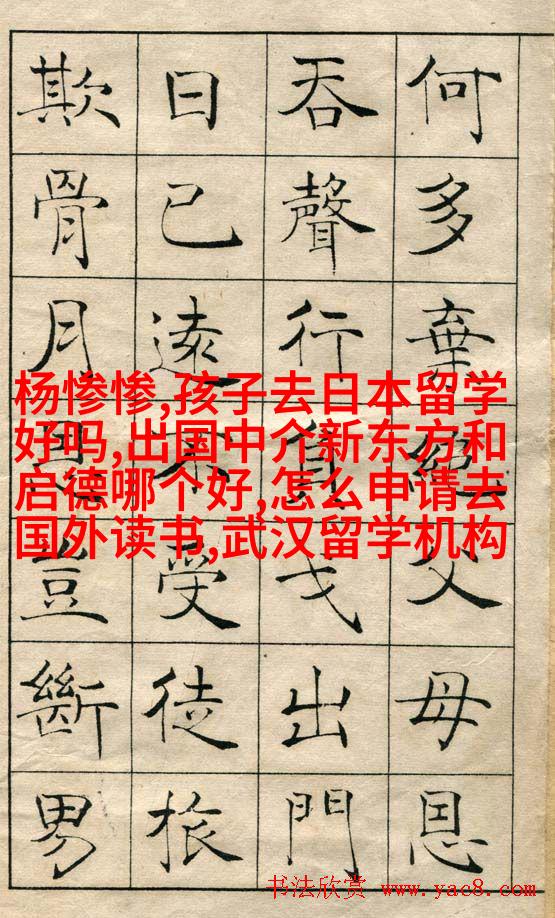 何多棄絕父母恩
吞聲行負戈出門
日已遠不受徒旅
欺骨肉恩豈斷男
杨惨惨,孩子去日本留学
好吗,出国中介新东方和
启德哪个好,怎么申请去
国外读书,武汉留学机构
书法欣赏 www.yac8.com